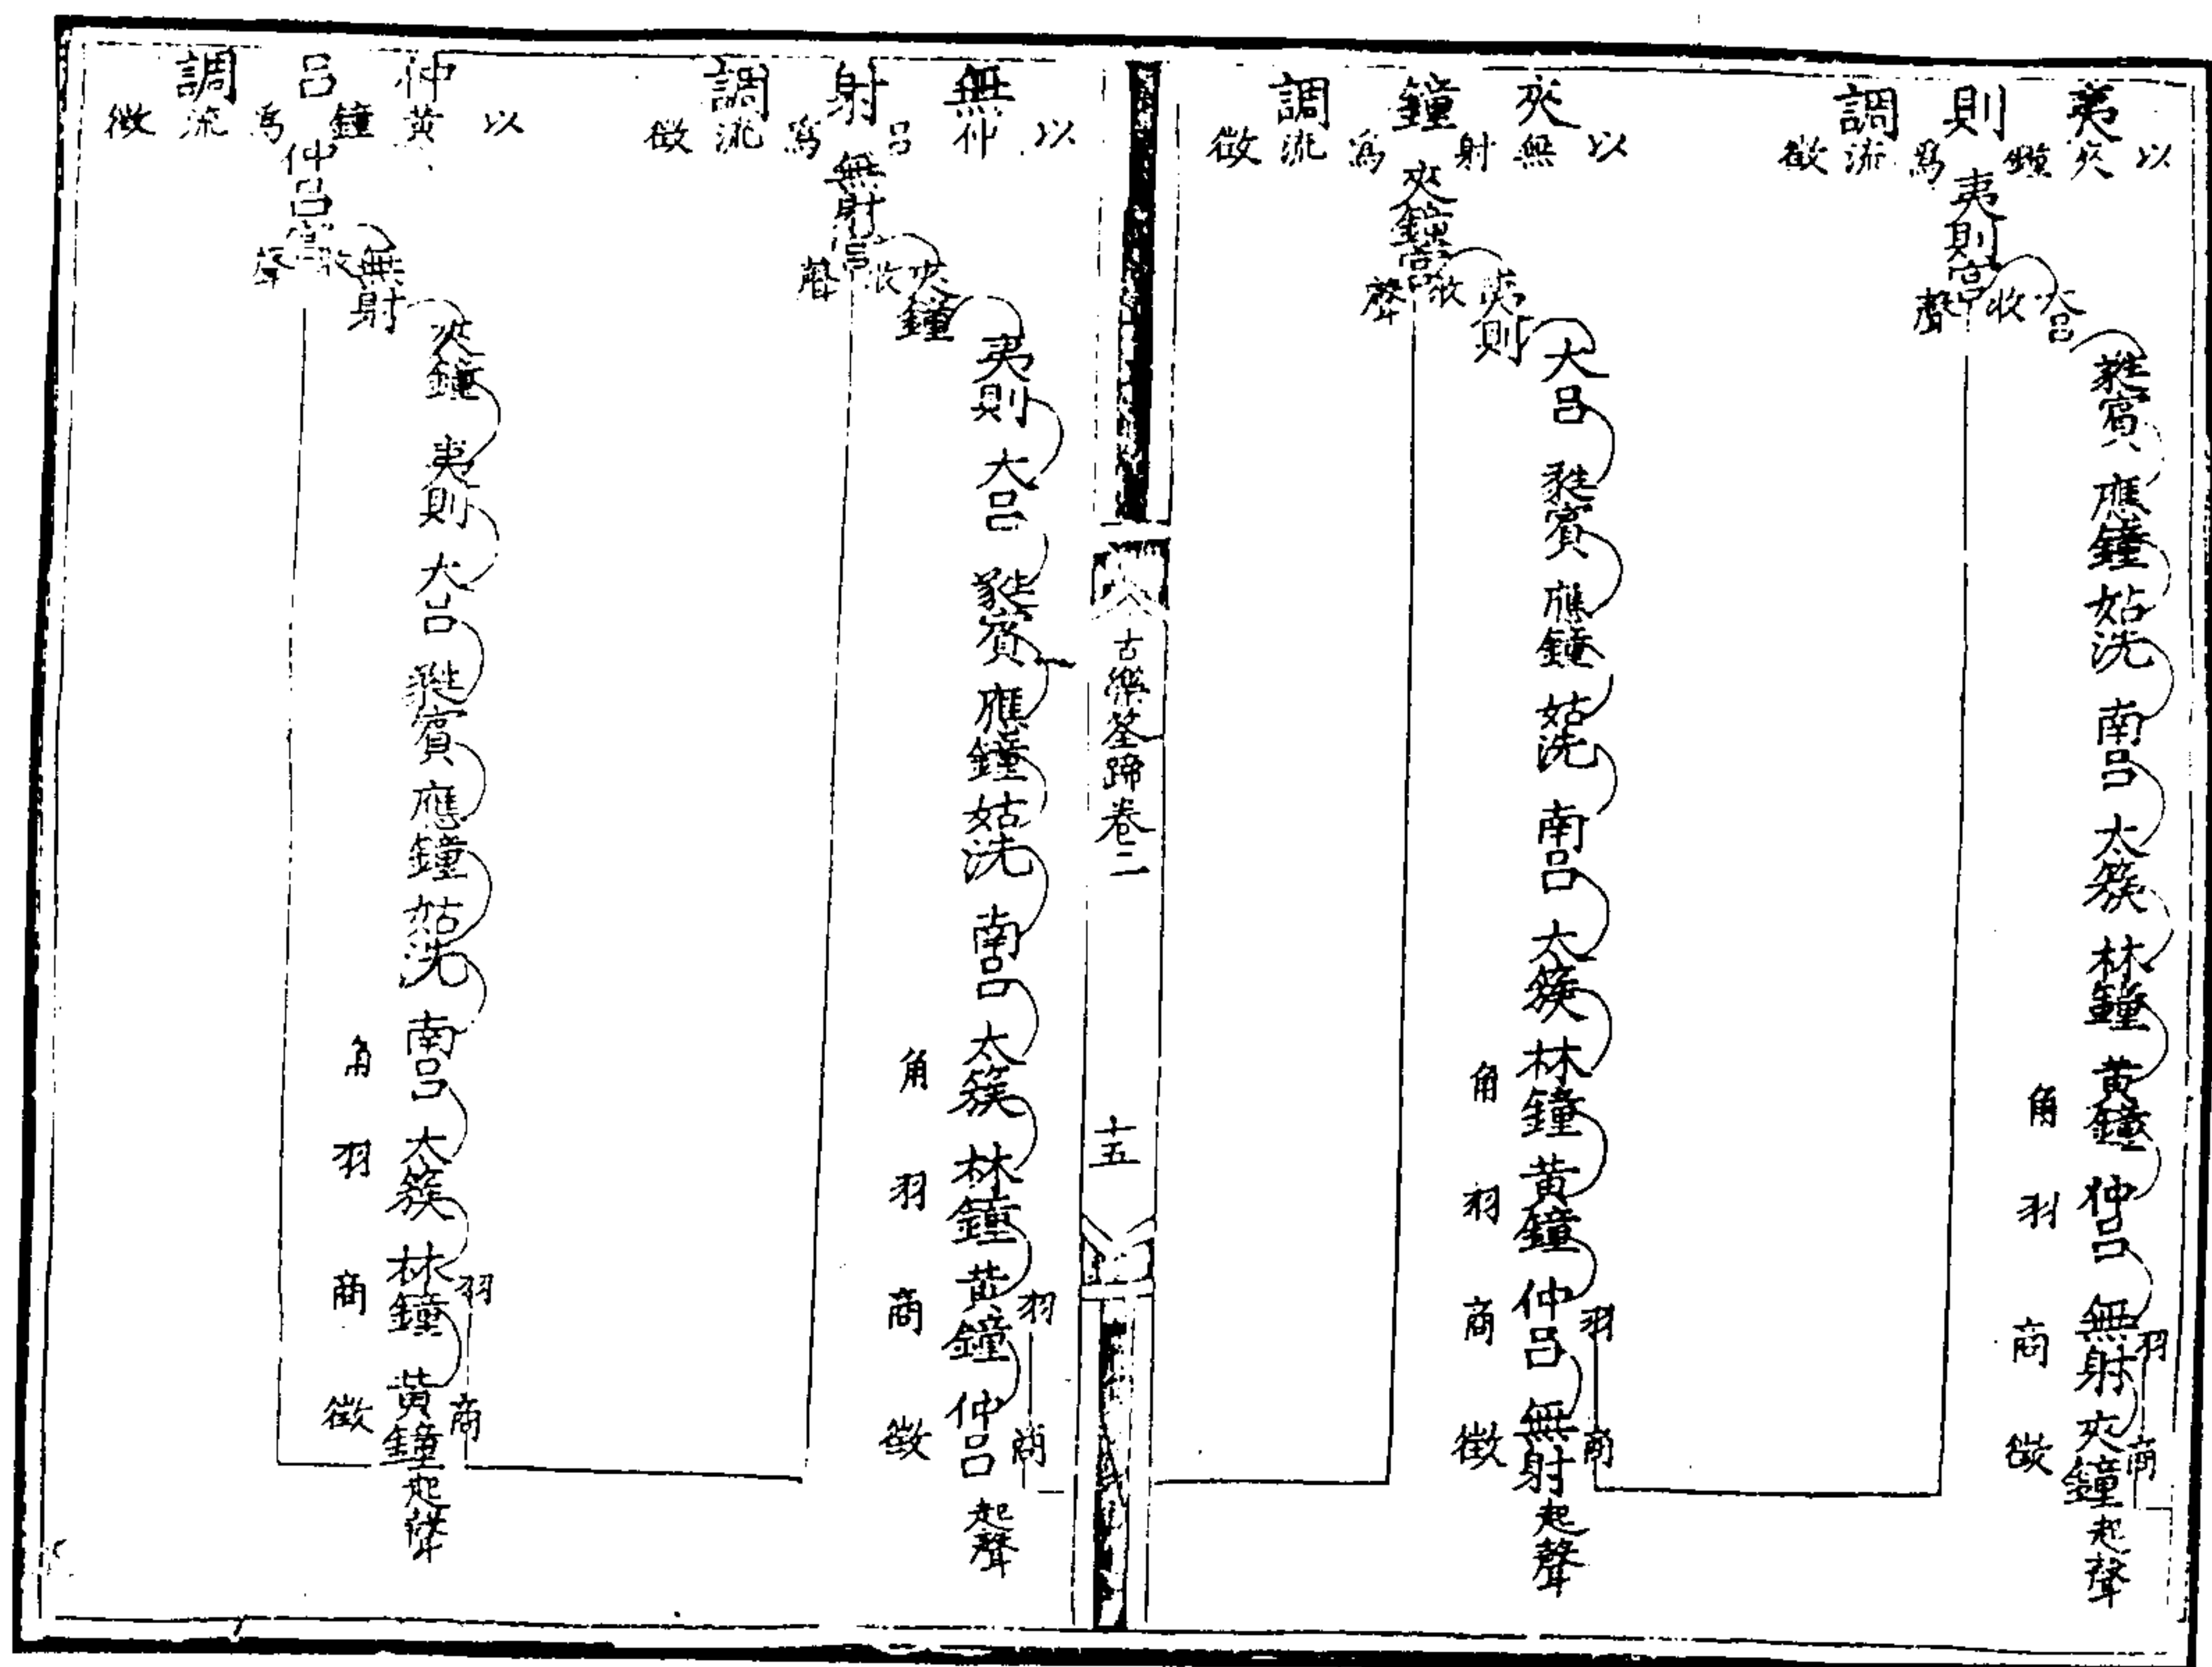 夷則調
以夾鐘爲流徵
夷則宮
收聲
大呂
蕤賓 應鐘 姑洗 南呂 太簇 林鐘 黃鐘 仲呂 無射 夾鐘 起聲
羽 商
角 羽 商 徵
夾鐘調
以無射爲流徵
夾鐘宮
收聲
夷則
大呂 蕤賓 應鐘 姑洗 南呂 太簇 林鐘 黃鐘 仲呂 無射 起聲
羽 商
角 羽 商 徵
古樂筌蹄卷二
十五
無射調
以仲呂爲流徵
無射宮
收聲
夾鐘
夷則 大呂 蕤賓 應鐘 姑洗 南呂 太簇 林鐘 黃鐘 仲呂 起聲
羽 商
角 羽 商 徵
仲呂調
以黃鐘爲流徵
仲呂宮
收聲
無射
夾鐘 夷則 大呂 蕤賓 應鐘 姑洗 南呂 太簇 林鐘 黃鐘 起聲
羽 商
角 羽 商 徵